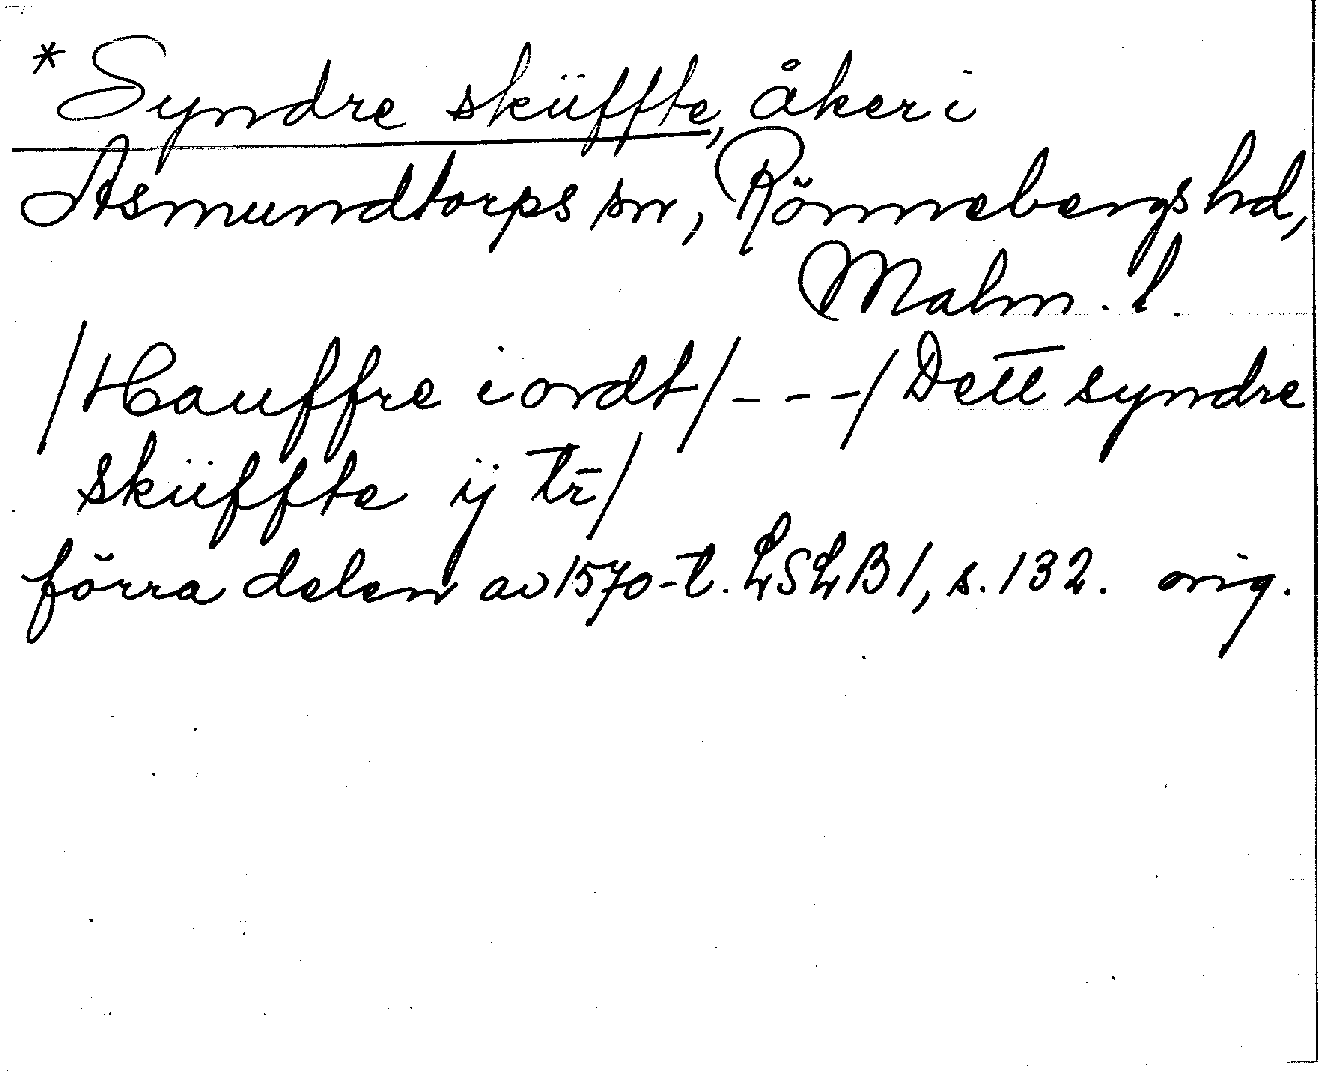 * Syndre sküffte, åker i
Asmundtorps sn, Rönnebergs hd,
Malm. l.
/Hauffre iordt/---/Dett syndre
sküffte ij tr̄/
förra delen av 1570-t. LSLB 1, s. 132. orig.